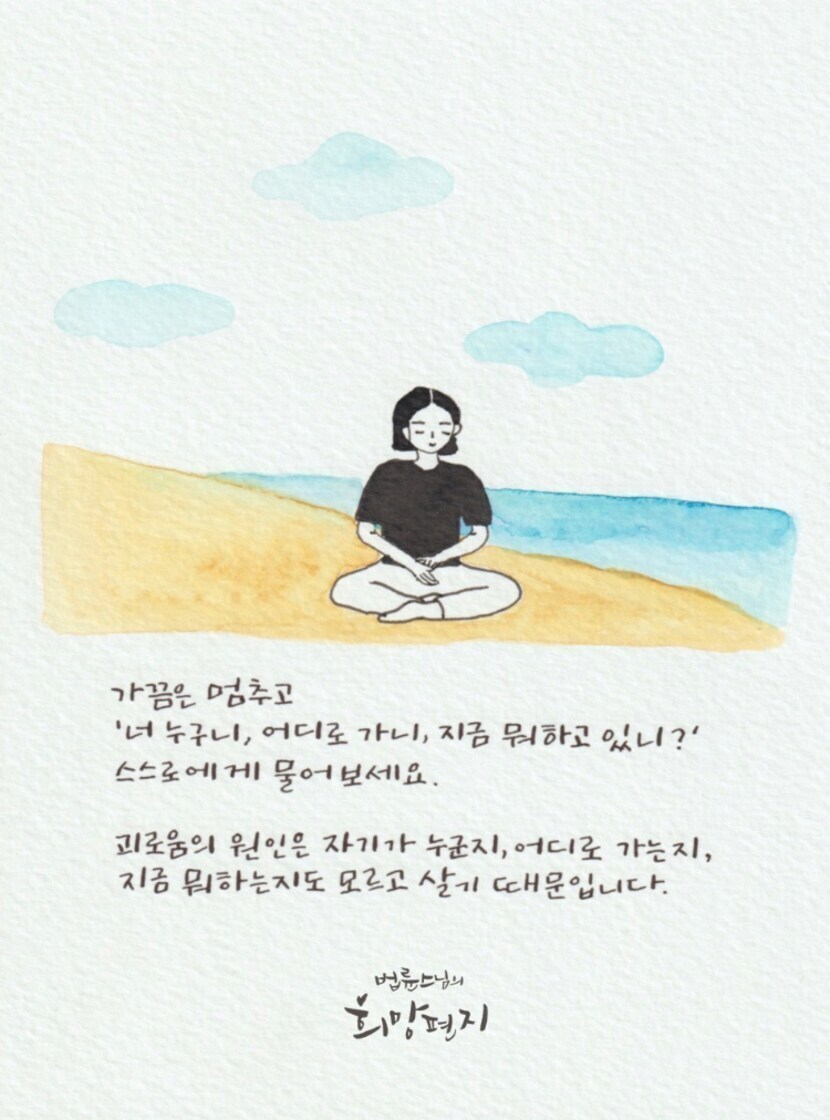 가끔은 멈추고
'너 누구니, 어디로 가니, 지금 뭐하고 있니?'
스스로에게 물어보세요.
괴로움의 원인은 자기가 누군지, 어디로 가는지,
지금 뭐하는지도 모르고 살기 때문입니다.
법륜스님의
희망편지